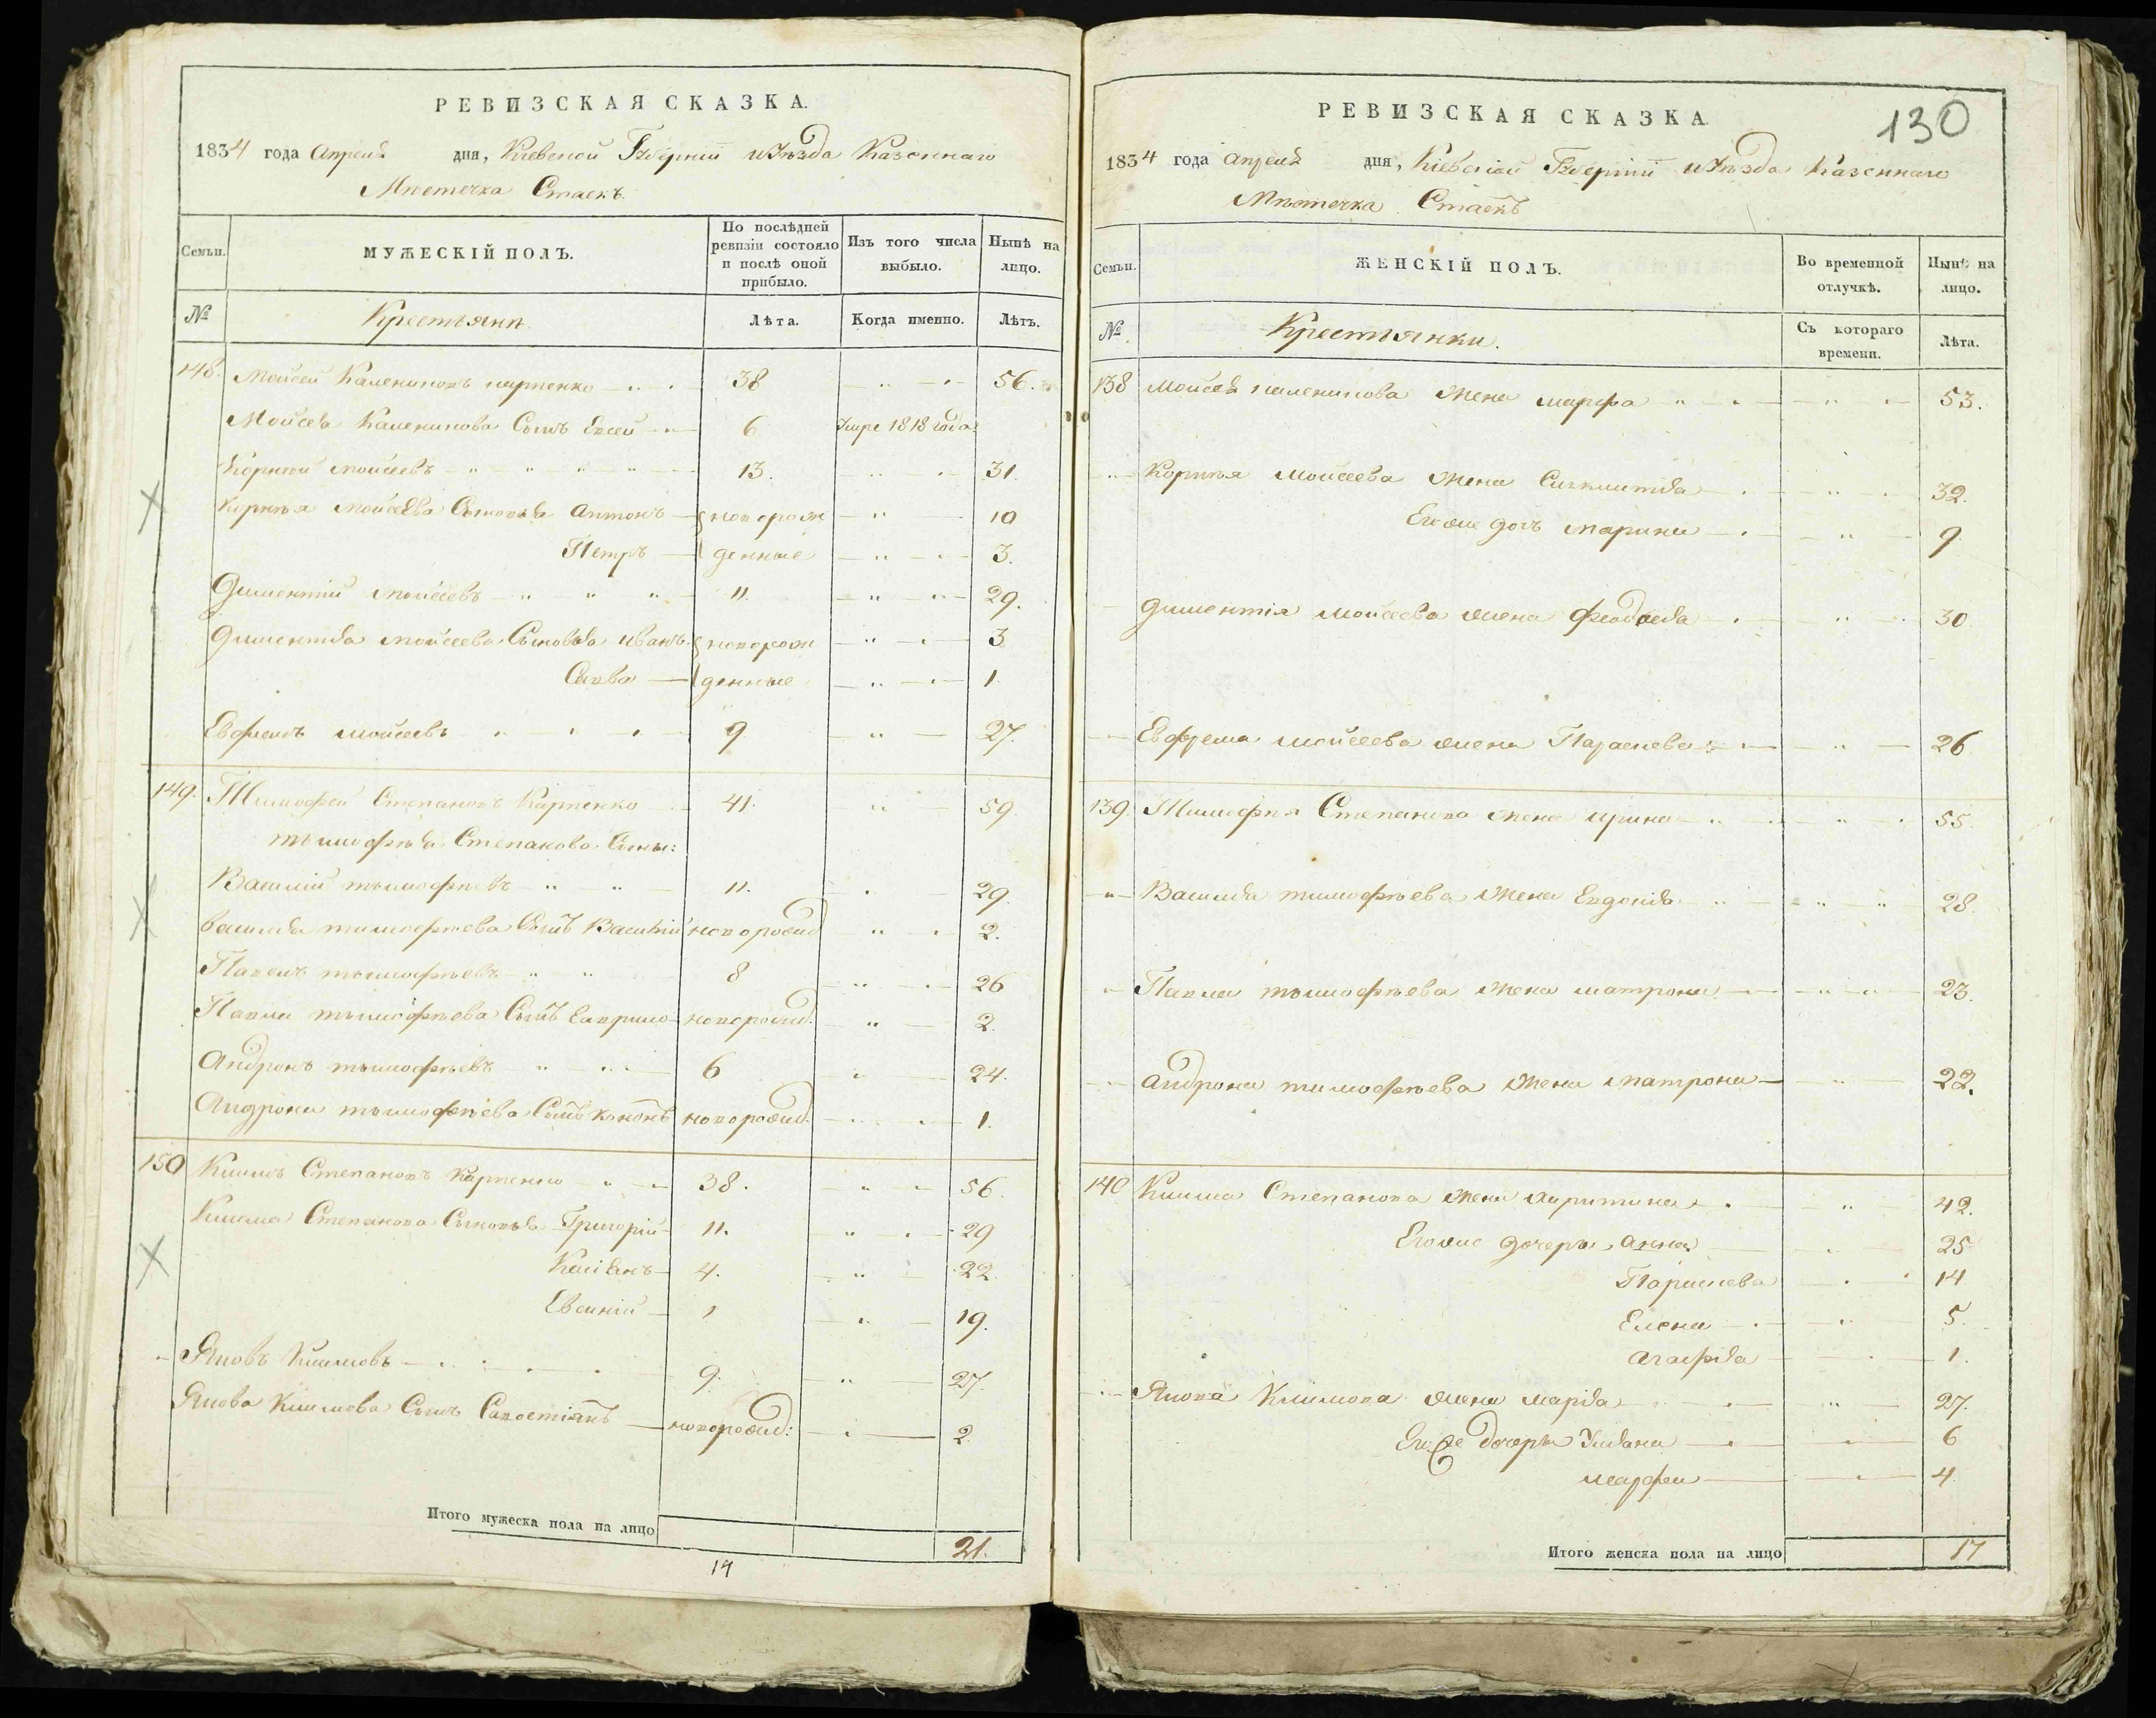 РЕВИЗСКАЯ СКАЗКА.
1834 года Апреля дня, Киевской Губерніи и Уѣзда Казеннаго
Мѣстечка Стаекъ
Семьи.
МУЖЕСКІЙ ПОЛЪ.
По послѣдней ревизіи состояло и послѣ оной прибыло.
Изъ того числа выбыло.
Нынѣ на лицо.
№
Крестьяни
Лѣта.
Когда именно.
Лѣтъ.
148. Моисей Калениковъ карпенко 38 56.
Моисея Каленикова Сынъ Евсей 6 Умре 1818 года
Корнѣй моисеевъ 13. 31.
Корнѣя моисеева Сыновья Антонъ новорож 10
Петръ денные 3.
Диментій моисеевъ 11. 29.
Диментія моисеева Сыновья иванъ новорож 3
Савва денные 1.
Евфремъ моисеевъ 9 27.
149. Тимофей Степановъ Карпенко 41. 59
тимофѣя Степанова Сыны:
Василій тимофѣевъ 11. 29.
василія тимофѣева Сынъ Василій новорожд 2.
Павелъ тимофѣевъ 8 26
Павла тимофѣева Сынъ Гаврило новорожд. 2.
Андронъ тимофѣевъ 6 24.
Андрона тимофѣева Сынъ кононъ новорожд. 1.
150 Климъ Степановъ Карпенко 38. 56.
Клима Степанова Сыновья Григорій 11. 29
Касіянъ 4. 22.
Евсиній 1 19.
Яковъ Климовъ 9. 27.
Якова Климова Сынъ Савостіянъ новорожд: 2
Итого мужеска пола на лицо 21.
14
130
РЕВИЗСКАЯ СКАЗКА
1834 года апреля дня, Кіевской Губерніи и Уѣзда Казеннаго
Мѣстечка Стаекъ
Семьи.
ЖЕНСКІЙ ПОЛЪ.
Во временной отлучкѣ.
Нынѣ на лицо.
№.
Крестьянки.
Съ котораго времени.
Лѣта.
138 Моисея каленикова жена марфа 53.
Корнѣя моисеева жена 32.
Его же дочь марина 9
Диментія моисеева жена 30
Евфрема моисеева жена Параскева 26
139. Тимофѣя Степанова жена ирина 55.
Василія тимофѣева жена Евдокія 28.
Павла тимофѣева жена матрона 23.
андрона тимофѣева жена матрона 22.
140 Клима Степанова жена харитина 42.
Его же дочери, анна 25
Параскева 14.
Елена 5.
агафія 1.
Якова Климова жена марія 27.
Его же дочери Уліана 6
марфа 4
Итого женска пола на лицо 17